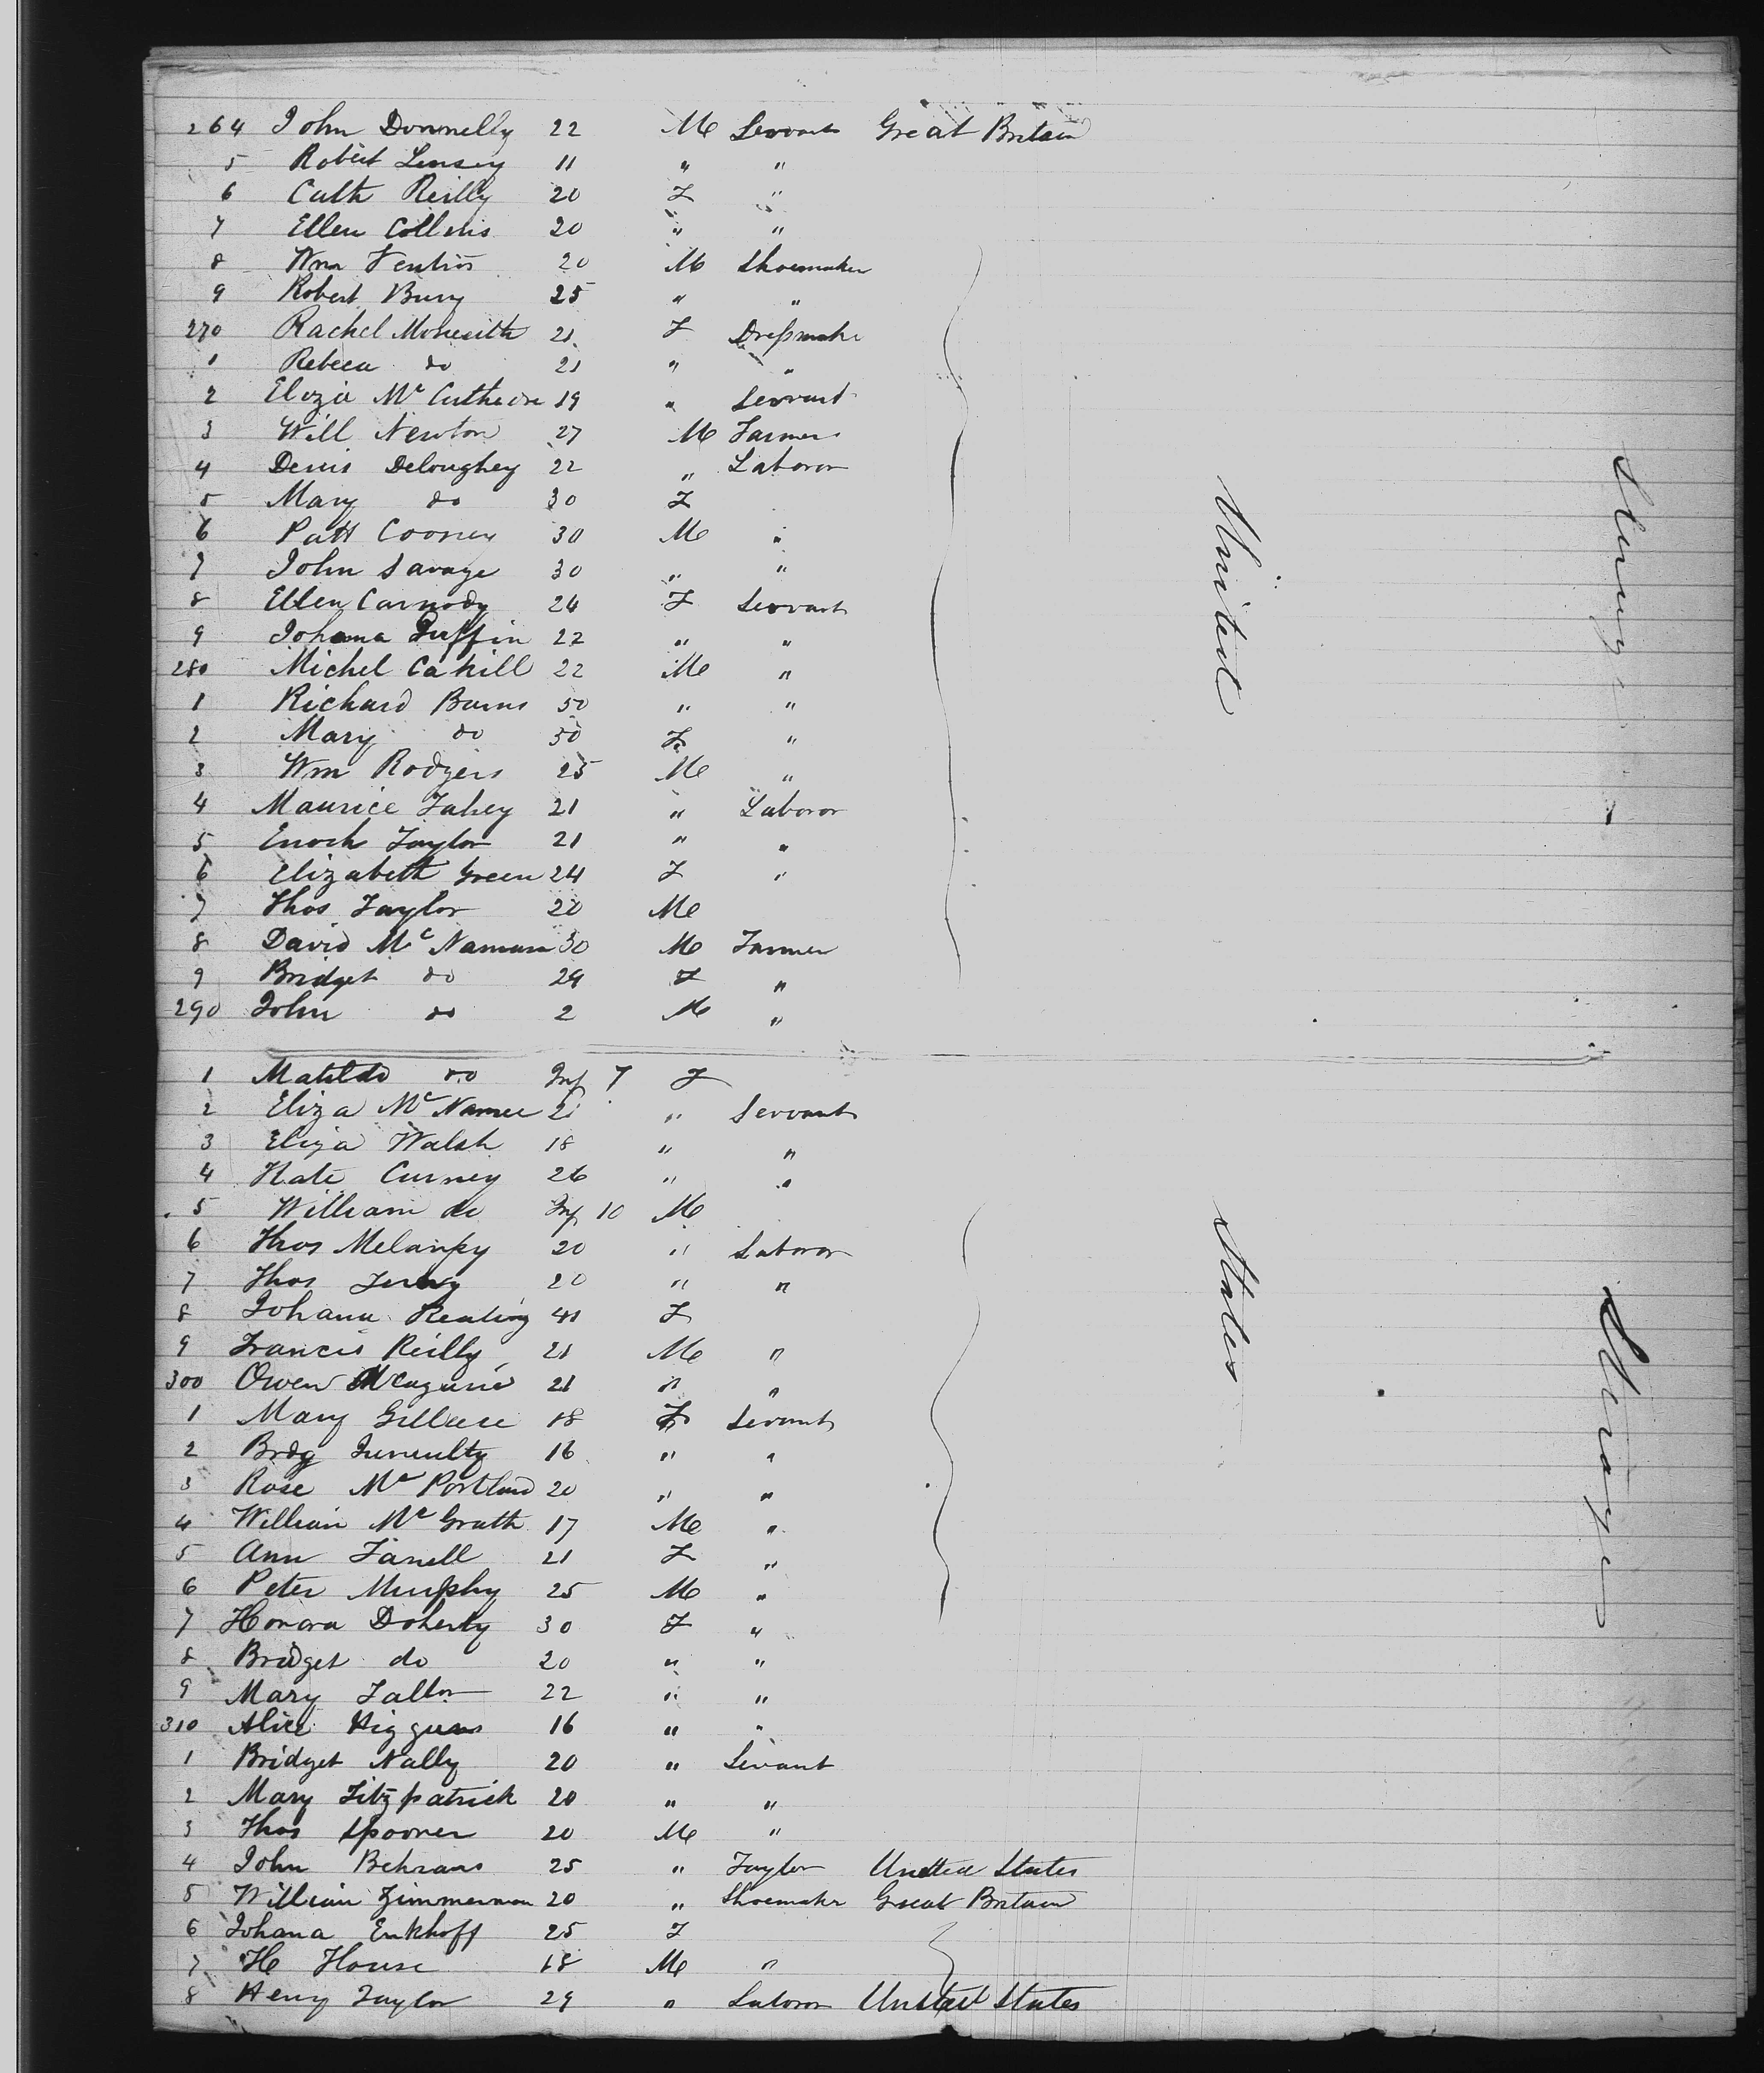 264 John Donnelly 22 M Servant Great Britain
5 Robert Linsey 11 " "
6 Cath Reilly 20 F "
7 Ellen Collins 20 " "
8 Wm 20 M Shoemaker
9 Robert Bury 25 " "
270 Rachel 21 F Dressmake
1 Rebeca do 21 " "
2 Eliza 19 " Servant
3 Will Newton 27 M Farmer
4 Denis Deloughey 22 " Laboror
5 Mary do 30 F
6 Patt Cooney 30 M "
7 John Savage 30 " "
8 Ellen Carmody 24 F Servant
9 Johana 22 " "
280 Michel Cahill 22 M "
1 Richard Burns 50 " "
2 Mary do 50 F "
3 Wm Rodgers 25 M "
4 Maurice Fahey 21 " Laboror
5 Enoch Taylor 21 " "
6 Elizabeth Green 24 F "
7 Thos Taylor 20 M
8 David Mc Namara 30 M Farmer
9 Bridget do 29 F "
290 John do 2 M "
1 Matilda do Inf 7 F
2 Eliza Mc Namee " Servant
3 Eliza Walsh 18 " "
4 Kate Curney 26 " "
5 William do Inf 10 M
6 Thos 20 " Laboror
7 Thos 20 " "
8 Johana Keating F
9 Francis Reilly 21 M "
300 Owen 21 " "
1 Mary 18 F Servant
2 Brdg 16 " "
3 Rose Mc Portland 20 " "
4 William Mc Grath 17 M "
5 Ann Farrell 21 F "
6 Peter Murphy 25 M "
7 Honora Doherty 30 F "
8 Bridget do 20 " "
9 Mary Fallon 22 " "
310 Alice Higgins 16 " "
1 Bridget Nally 20 " Servant
2 Mary Fitzpatrick 20 " "
3 Thos Spooner 20 M "
4 John Behrans 25 " Taylor United States
5 William Zimmerman 20 " Shoemaker Great Britain
6 Johana Enkhoff 25 F
7 H House 18 M "
8 Henry Taylor 29 " Laboror United States
United
States
Steerage